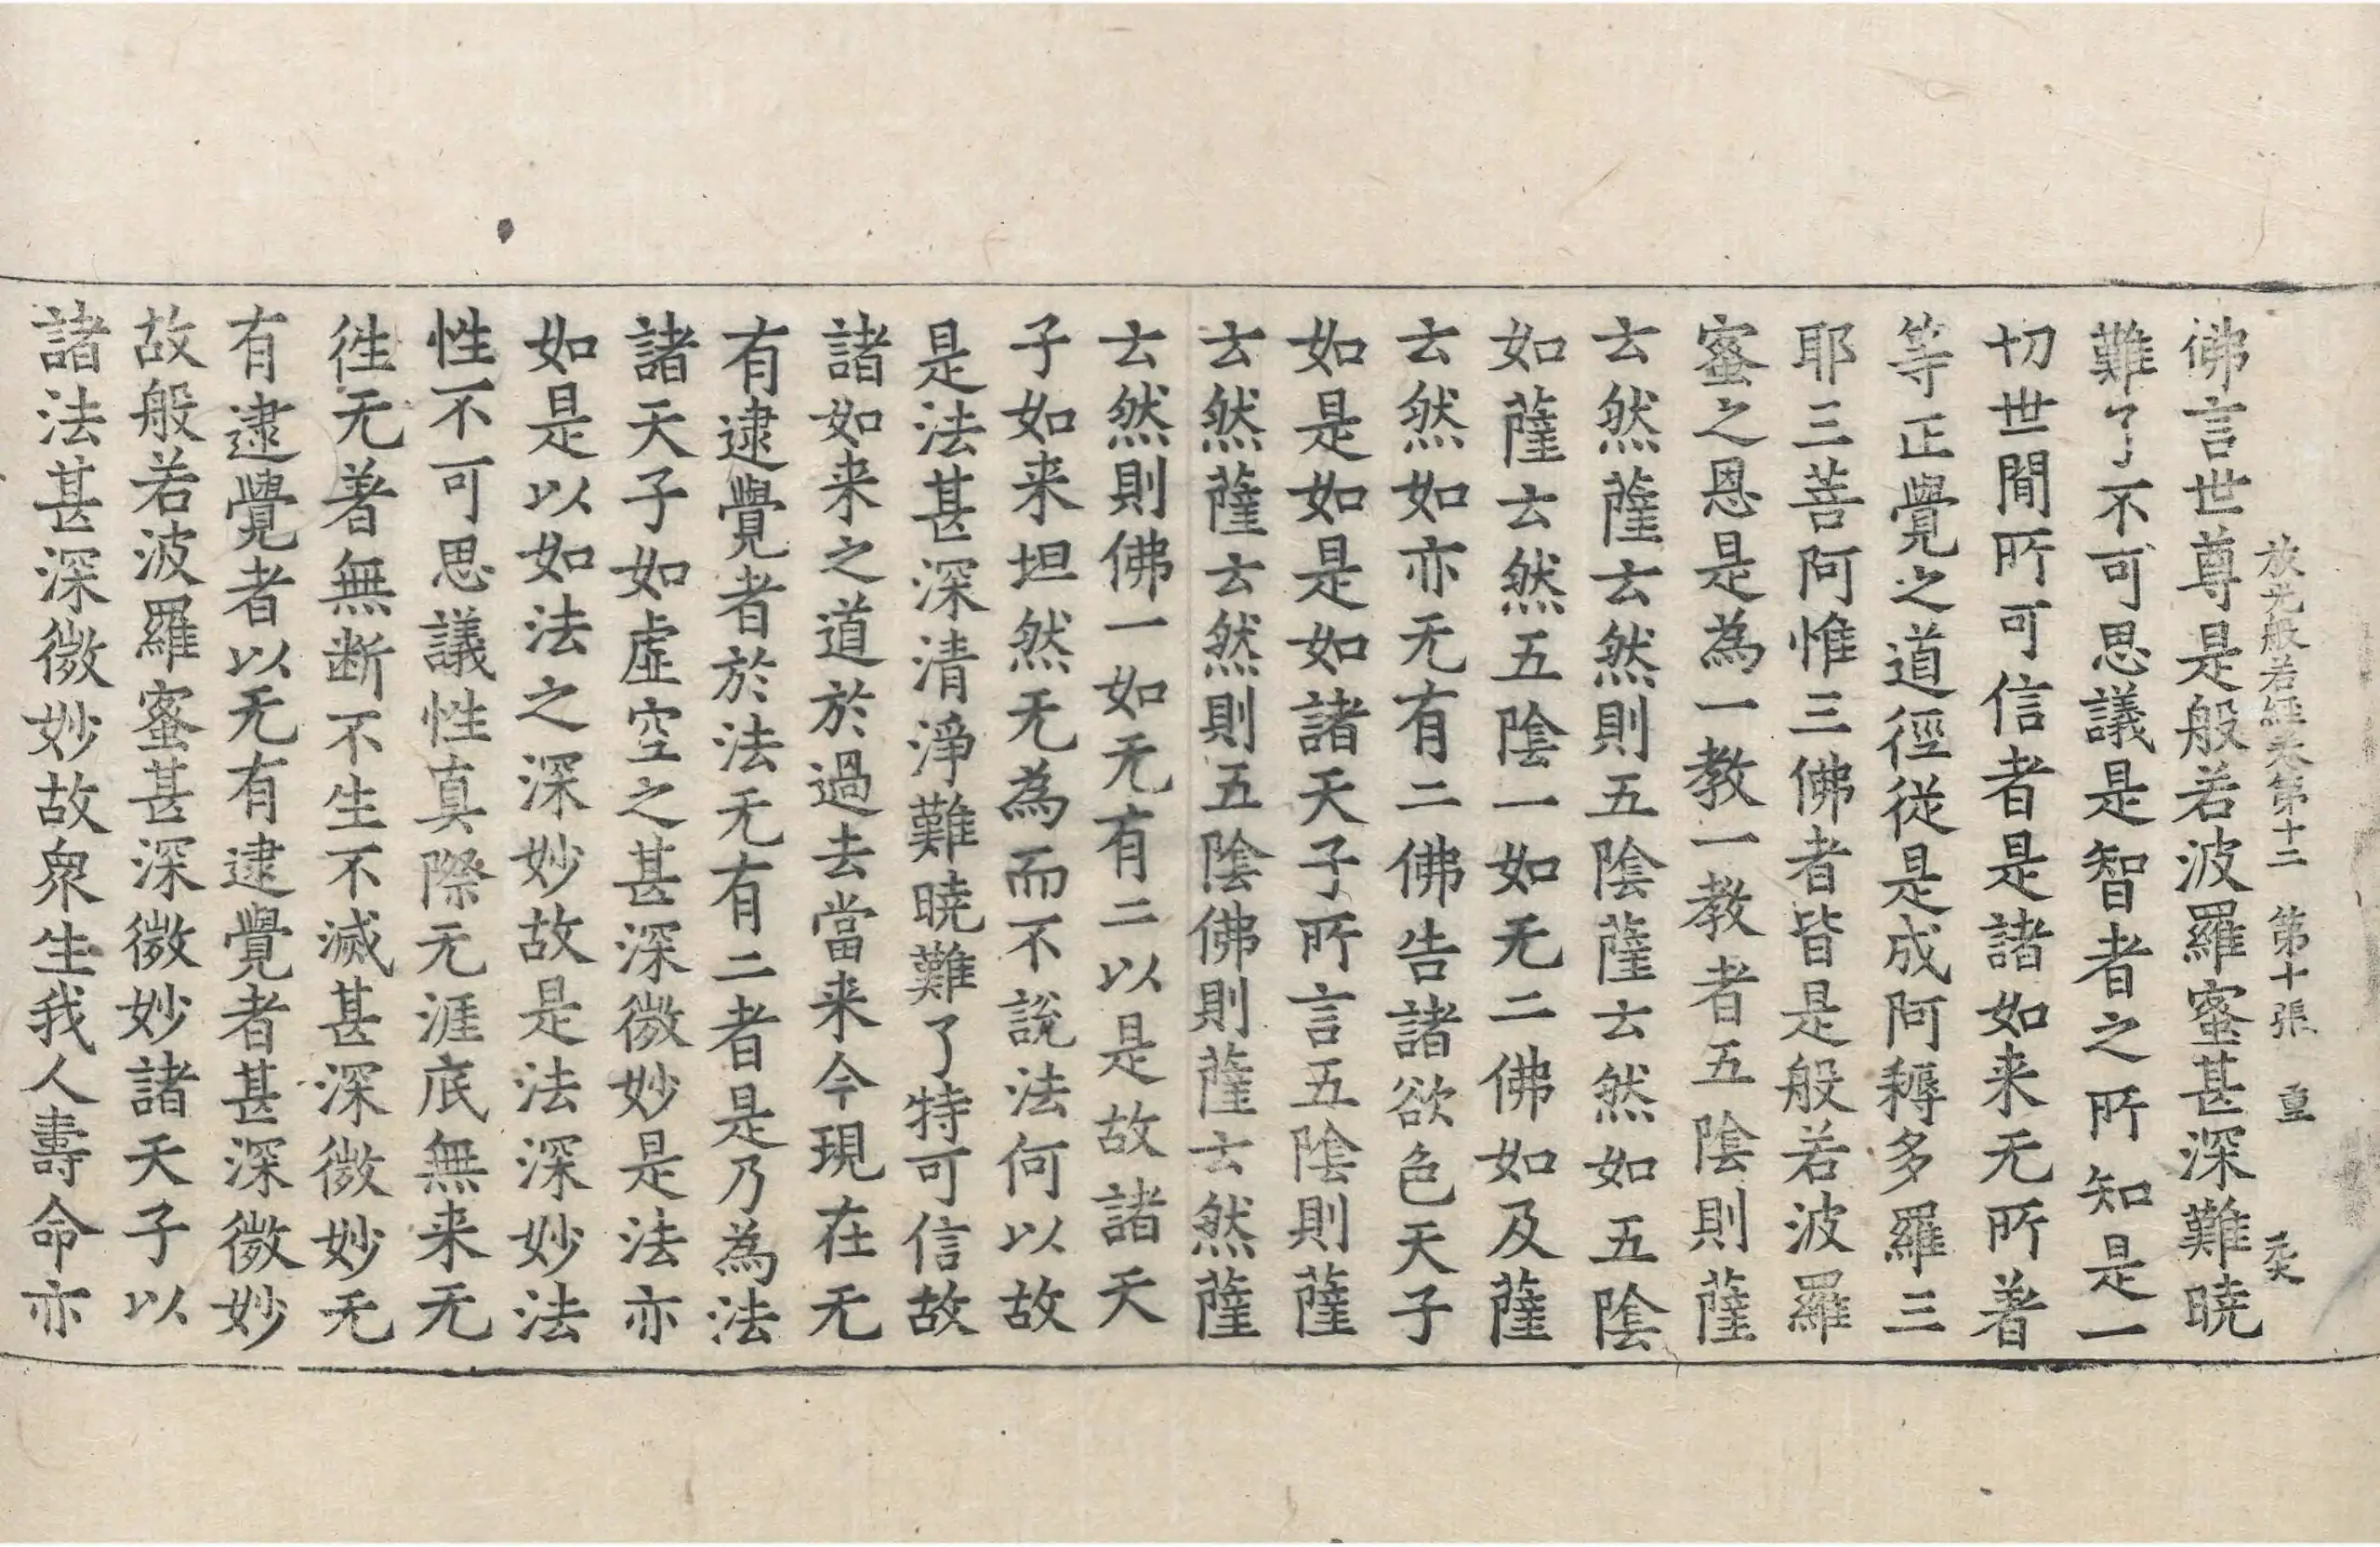 放光般若經卷第十二 第十張 重
佛言世尊是般若波羅蜜甚深難曉
難了不可思議是智者之所知是一
切世間所可信者是諸如来无所著
等正覺之道徑從是成阿耨多羅三
耶三菩阿惟三佛者皆是般若波羅
蜜之恩是為一教一教者五陰則薩
云然薩云然則五陰薩云然如五陰
如薩云然五陰一如无二佛如及薩
云然如亦无有二佛告諸欲色天子
如是如是如諸天子所言五陰則薩
云然薩云然則五陰佛則薩云然薩
云然則佛一如无有二以是故諸天
子如来坦然无為而不說法何以故
是法甚深清淨難曉難了特可信故
諸如来之道於過去當来今現在无
有逮覺者於法无有二者是乃為法
諸天子如虛空之甚深微妙是法亦
如是以如法之深妙故是法深妙法
性不可思議性真際无涯底無来无
徃无著無断不生不滅甚深微妙无
有逮覺者以无有逮覺者甚深微妙
故般若波羅蜜甚深微妙諸天子以
諸法甚深微妙故衆生我人壽命亦